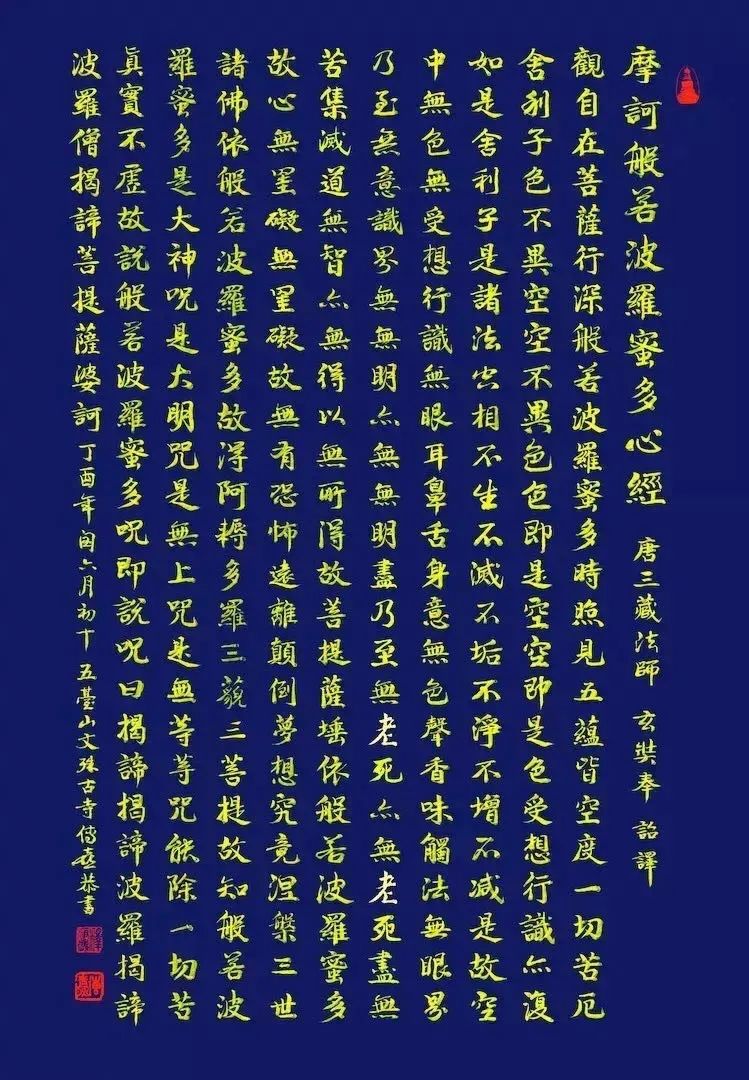 摩訶般若波羅蜜多心經 唐三藏法師 玄奘奉 詔譯
觀自在菩薩行深般若波羅蜜多時照見五蘊皆空度一切苦厄
舍利子色不異空空不異色色即是空空即是色受想行識亦復
如是舍利子是諸法空相不生不滅不垢不淨不增不减是故空
中無色無受想行識無眼耳鼻舌身意無色聲香味觸法無眼界
乃至無意識界無無明亦無無明盡乃至無老死亦無老死盡無
苦集滅道無智亦無得以無所得故菩提薩埵依般若波羅蜜多
故心無罣礙無罣礙故無有恐怖遠離顛倒夢想究竟涅槃三世
諸佛依般若波羅蜜多故得阿耨多羅三藐三菩提故知般若波
羅蜜多是大神咒是大明咒是無上咒是無等等咒能除一切苦
真實不虛故說般若波羅蜜多咒即說咒曰揭諦揭諦波羅揭諦
波羅僧揭諦菩提薩婆訶 丁酉年閏六月初十五臺山文殊古寺傳 恭書